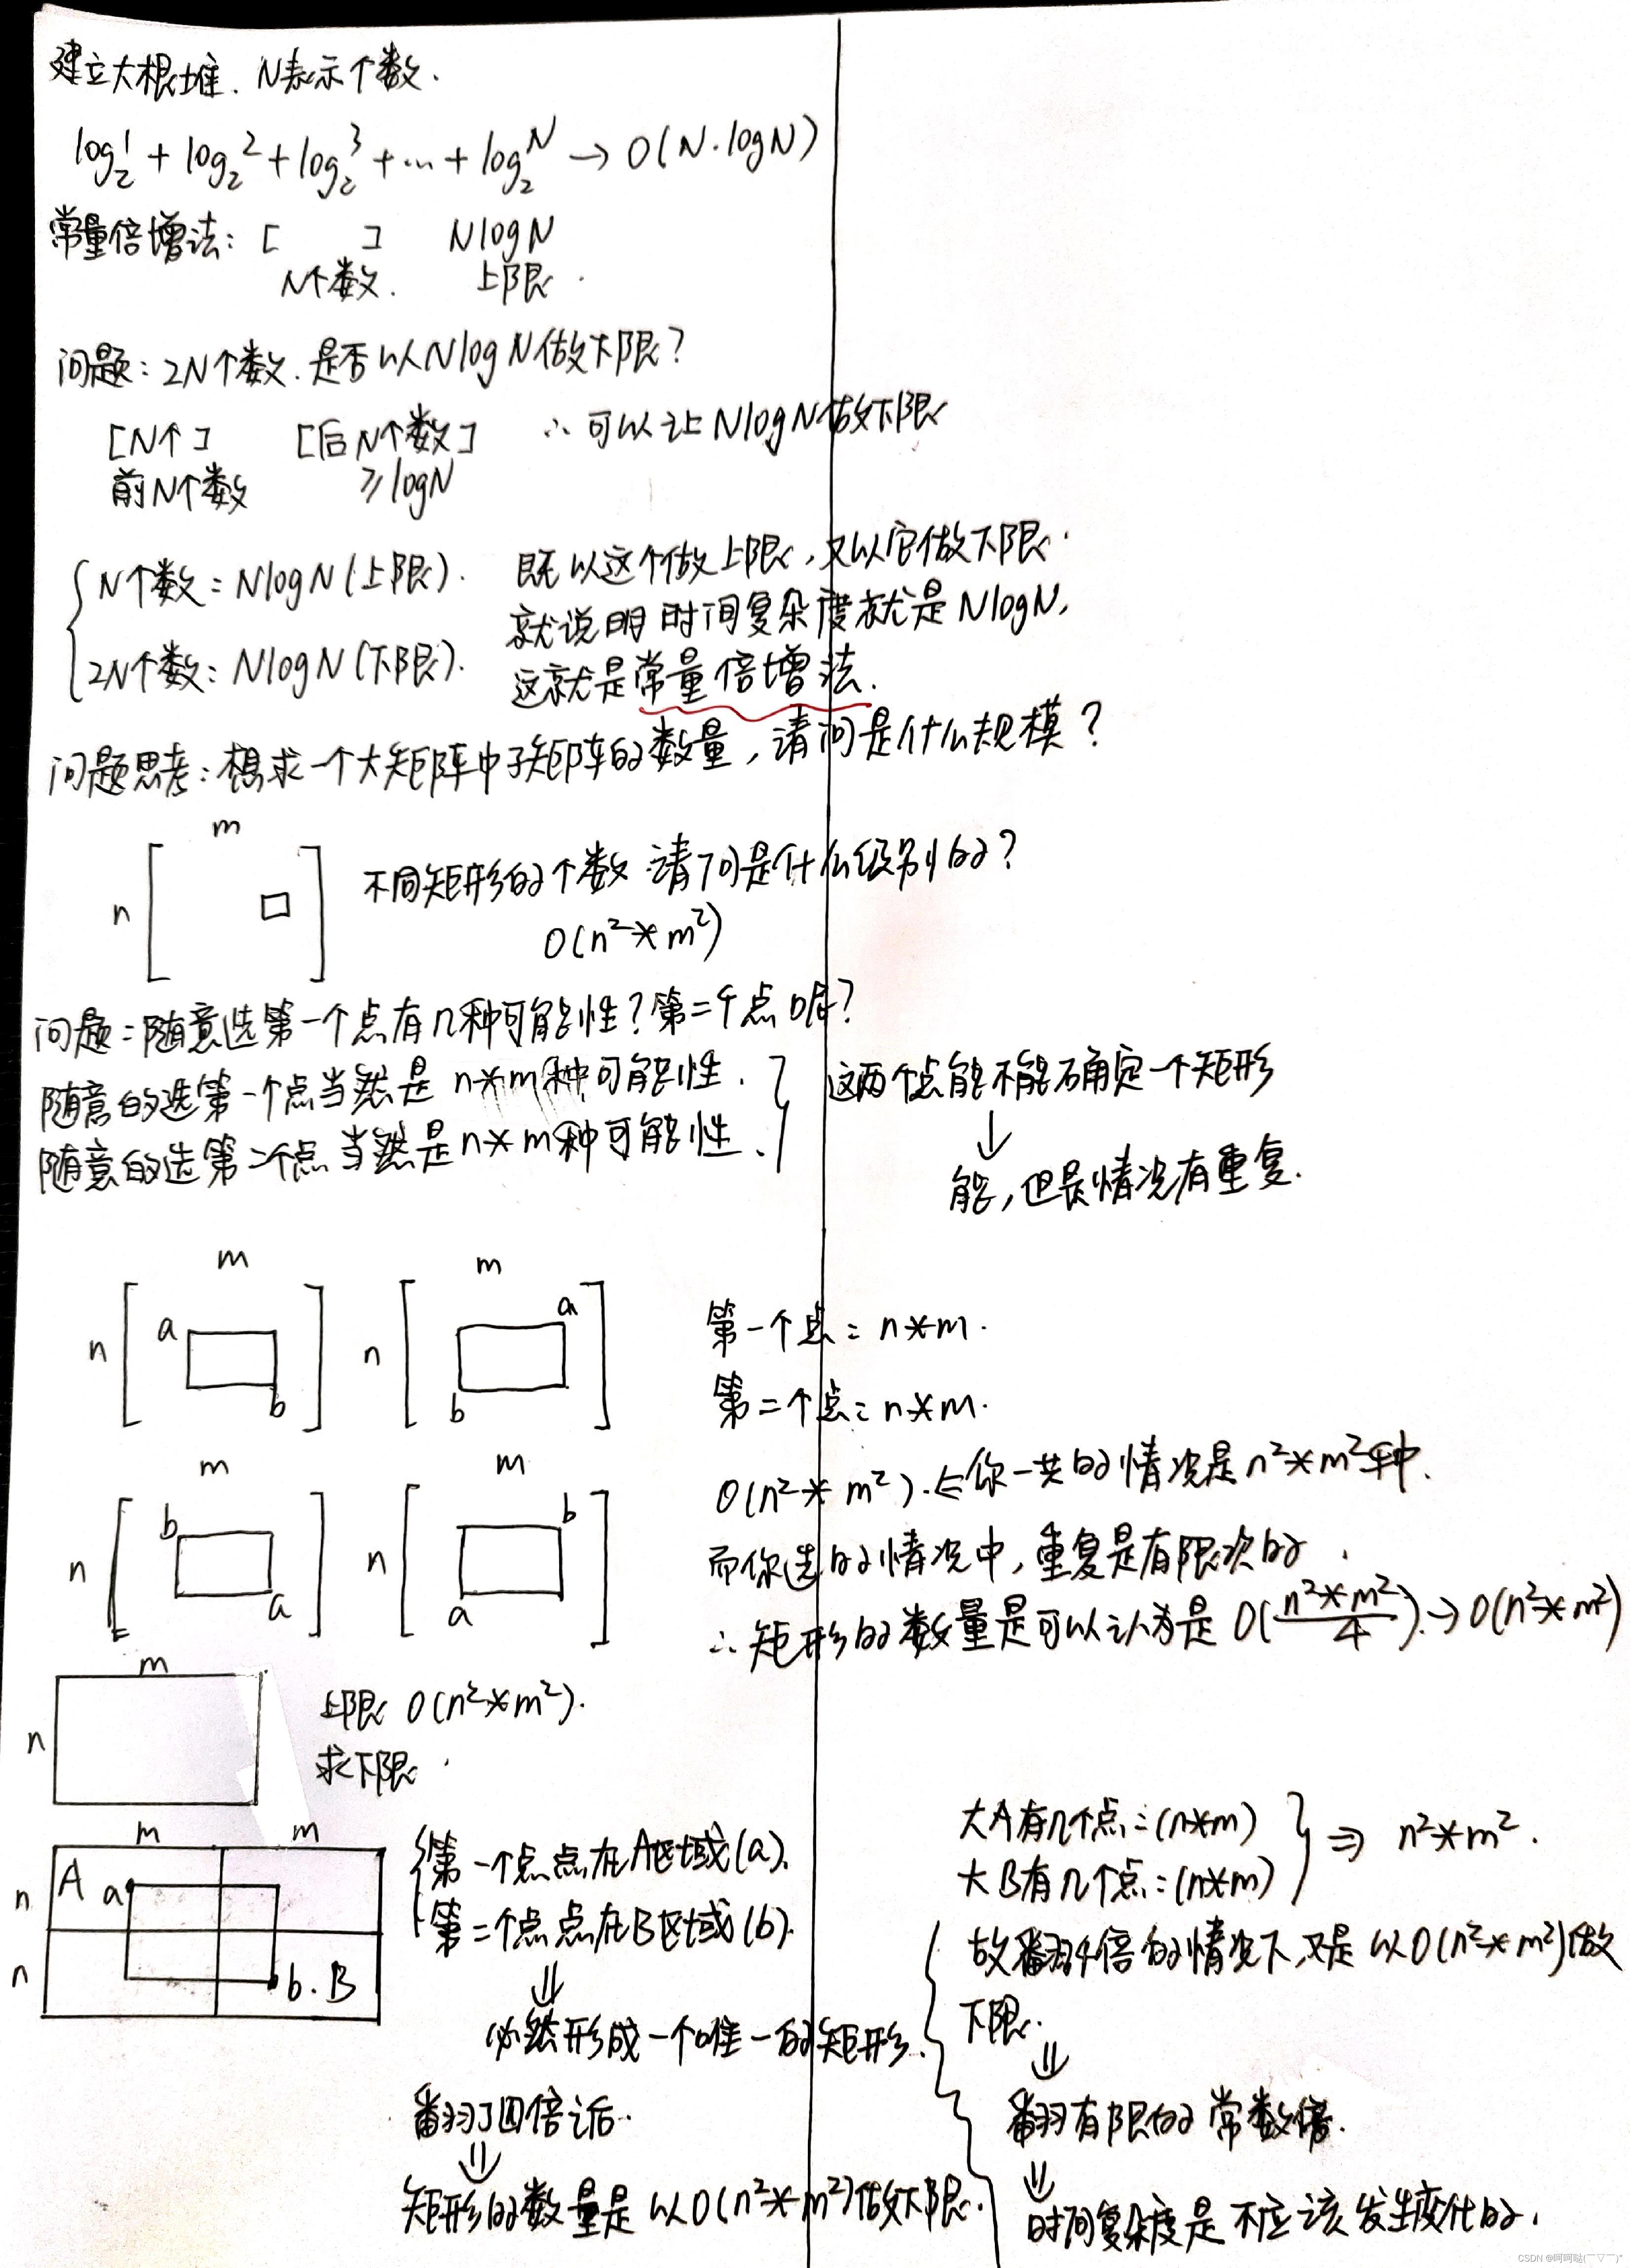 建立大根堆. N表示个数.
log₂¹ + log₂² + log₂³ + … + log₂ᴺ → O(N·logN)
常量倍增法: [ ] NlogN
N个数. 上限.
问题: 2N个数. 是否以NlogN做下限?
[N个] [后N个数] ∴ 可以让NlogN做下限
前N个数 ≥logN
N个数: NlogN(上限). 既以这个做上限, 又以它做下限.
就说明时间复杂度就是NlogN,
2N个数: NlogN(下限).
这就是常量倍增法.
问题思考: 想求一个大矩阵中子矩阵的数量, 请问是什么规模?
m
n
不同矩形的个数 请问是什么级别的?
O(n²*m²)
问题: 随意选第一个点有几种可能性? 第二个点呢?
随意的选第一个点当然是 n*m种可能性.
随意的选第二个点当然是n*m种可能性.
这两个点能不能确定一个矩形
↓
能, 但是情况有重复.
m m
n a b n a b
第一个点: n*m.
第二个点: n*m.
m m
n b a n b a
O(n²*m²). ⇐你一共的情况是n²*m²种.
而你选的情况中, 重复是有限次的.
∴ 矩形的数量是可以认为是 O(n²*m²/4).→O(n²*m²)
m
n
上限 O(n²*m²).
求下限.
m m
n A a
n b. B
第一个点点在A区域(a).
第二个点点在B区域(b).
⇓
必然形成一个唯一的矩形.
翻了四倍之后.
⇓
矩形的数量是以O(n²*m²)做下限.
大A有几个点: (n*m)
大B有几个点: (n*m)
⇒ n²*m².
故翻4倍的情况下, 又是以O(n²*m²)做
下限.
⇓
翻有限的常数倍.
⇓
时间复杂度是不应该发生变化的.
CSDN @呵呵哒(￣▽￣)"